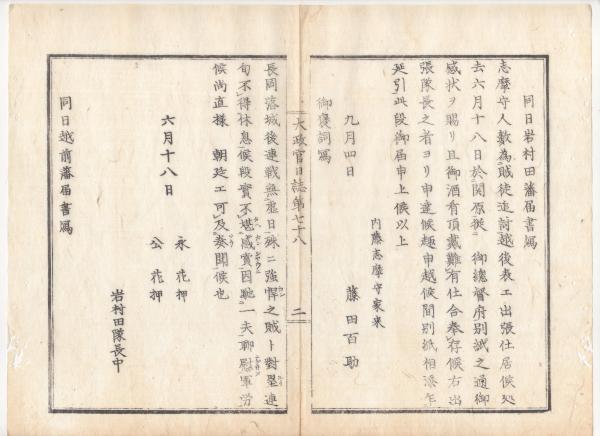 同日岩村田藩届書寫
志摩守人數為賊徒追討越後表エ出張仕居候処
去六月十八日於関原従 御總督府別紙之通御
感状ヲ賜リ且御酒肴頂戴難有仕合奉存候右出
張隊長之者ヨリ申達候趣申越候間別紙相添乍
延引此段御届申上候以上
内藤志摩守家来
九月四日 藤田百助
御褒詞寫
大政官日誌第七十八 二
長岡落城後連戰無虚日殊ニ強悍之賊ト對壘連
旬不得休息候段實不堪感賞因馳一夫聊慰軍労
候尚直様 朝廷エ可及奏聞候也
六月十八日 永花押
公花押
岩村田隊長中
同日越前藩届書寫